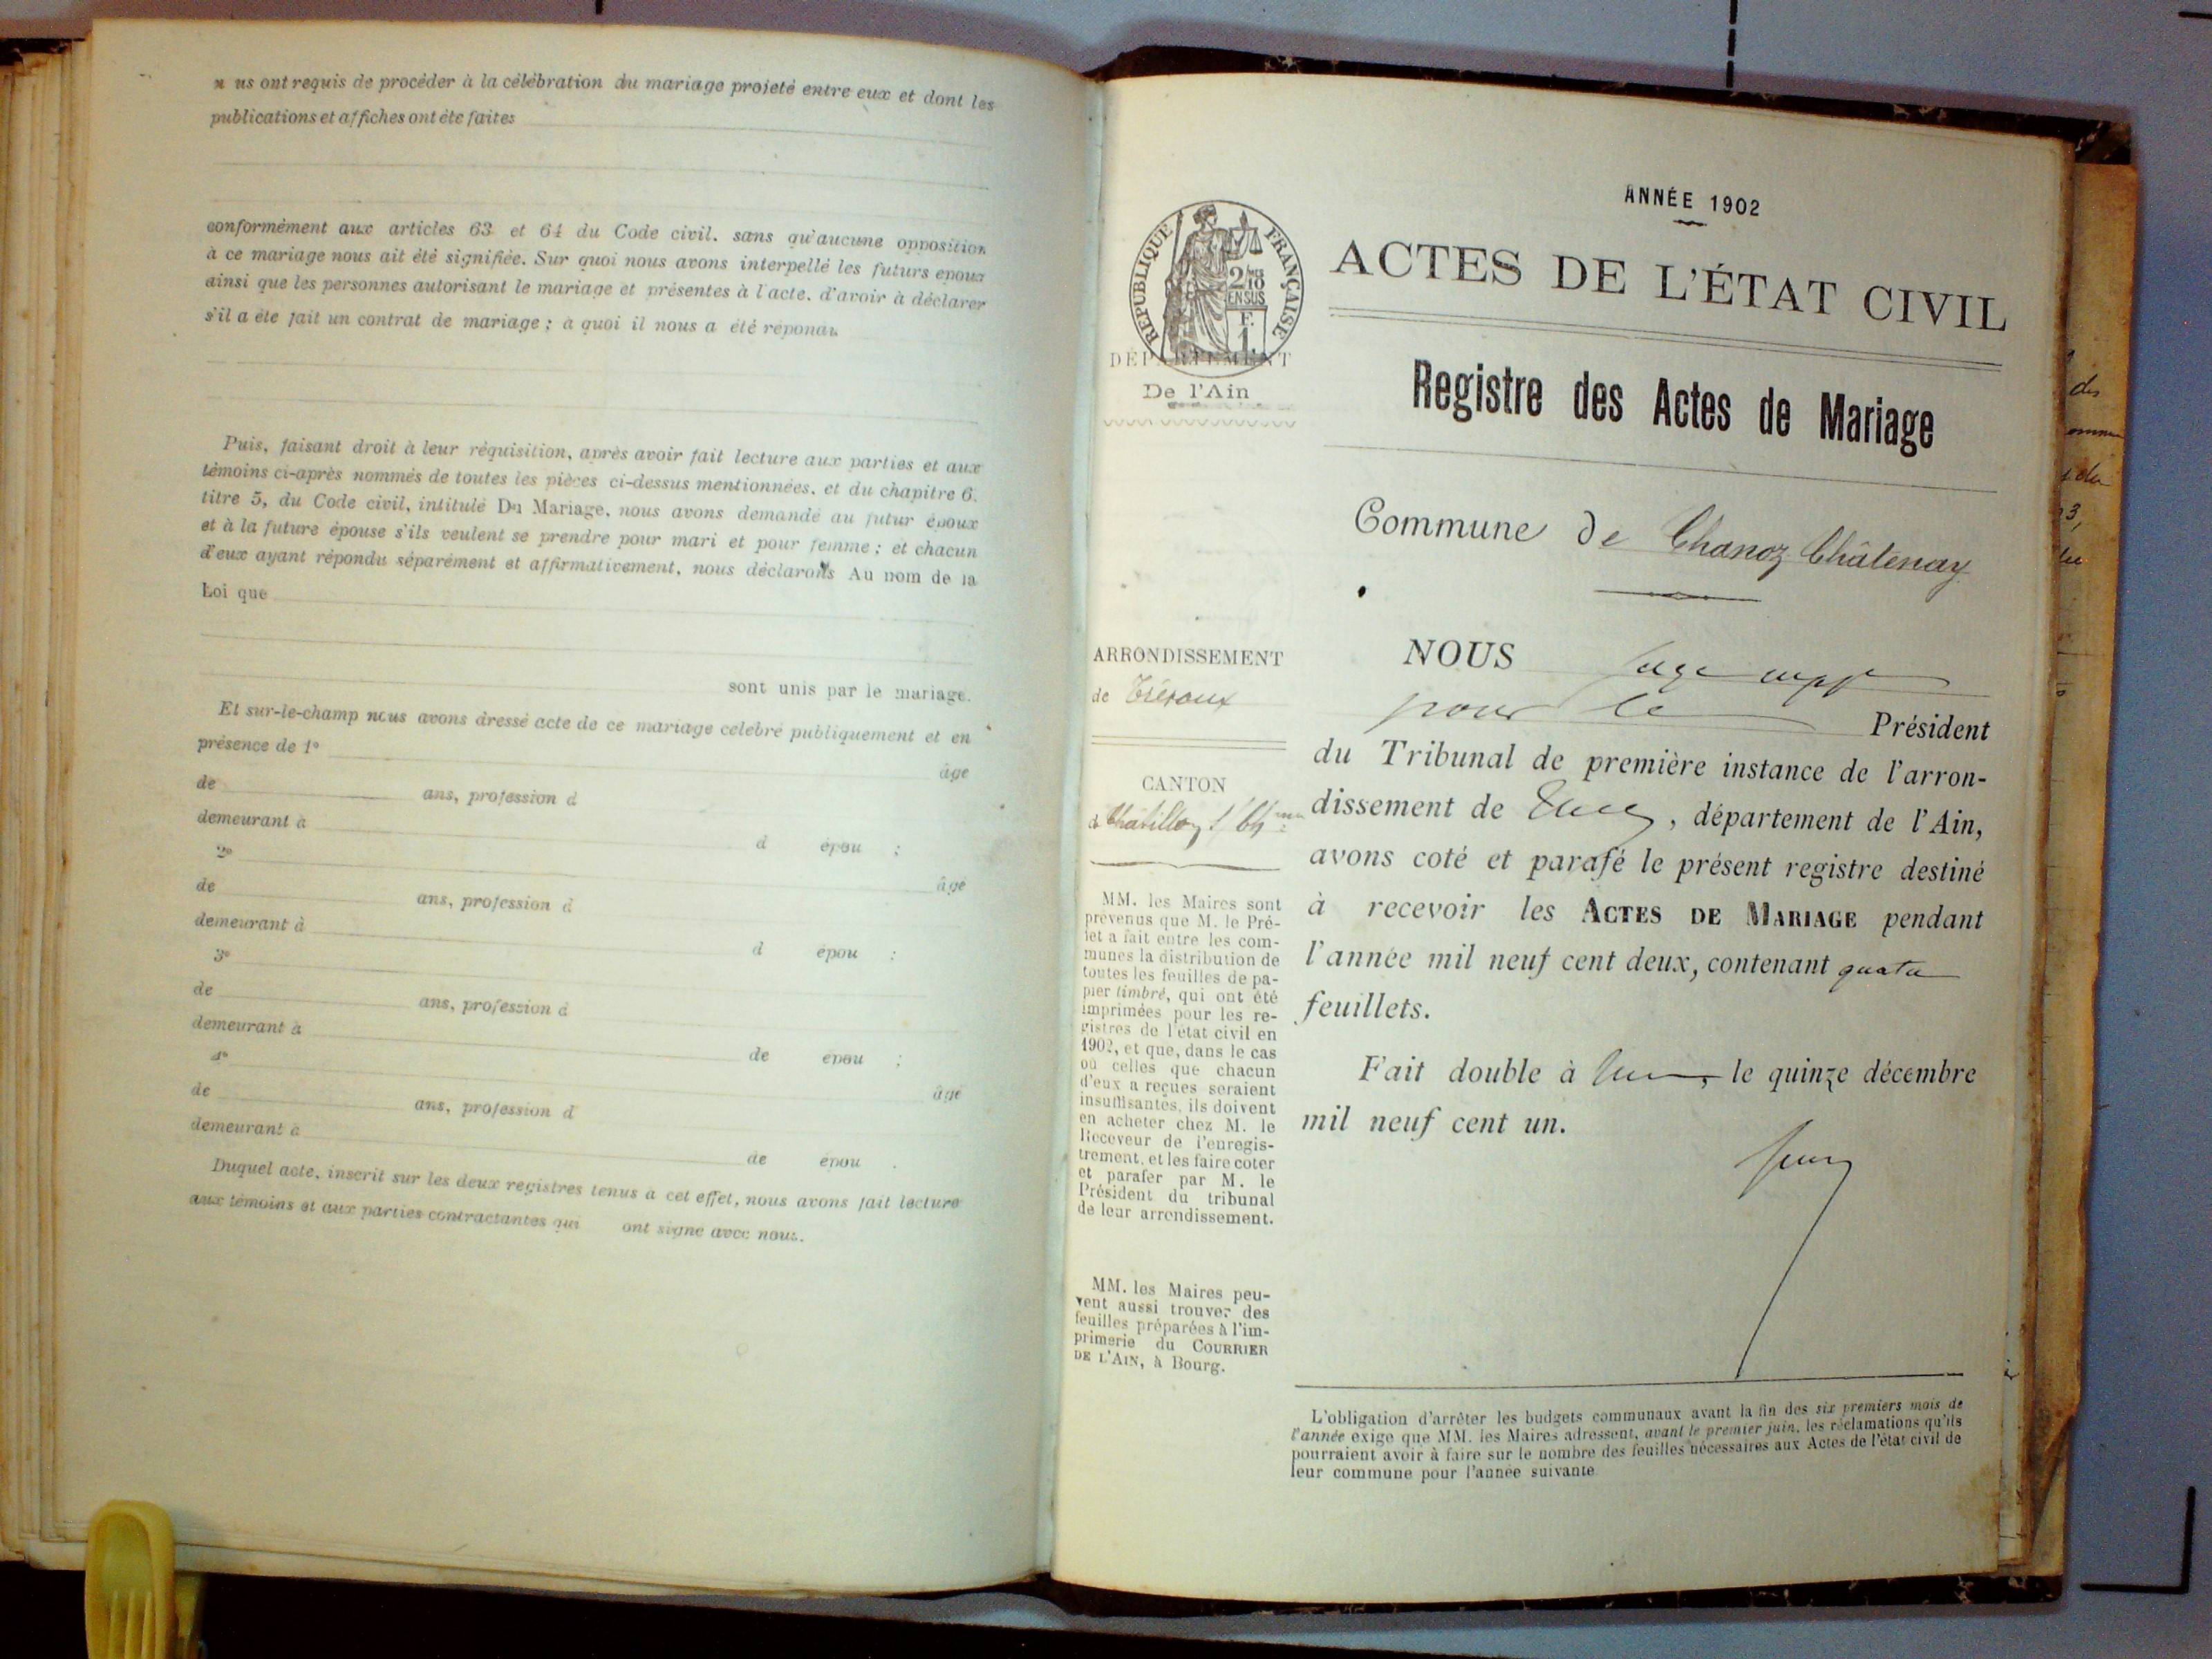 n us ont requis de procéder à la célébration du mariage projeté entre eux et dont les
publications et affiches ont été faites
conformément aux articles 63 et 64 du Code civil, sans qu'aucune opposition
à ce mariage nous ait été signifiée. Sur quoi nous avons interpellé les futurs époux
ainsi que les personnes autorisant le mariage et présentes à l'acte, d'avoir à déclarer
s'il a été fait un contrat de mariage ; à quoi il nous a été répondu
Puis, faisant droit à leur réquisition, après avoir fait lecture aux parties et aux
témoins ci-après nommés de toutes les pièces ci-dessus mentionnées, et du chapitre 6,
titre 5, du Code civil, intitulé Du Mariage, nous avons demandé au futur époux
et à la future épouse s'ils veulent se prendre pour mari et pour femme ; et chacun
d'eux ayant répondu séparément et affirmativement, nous déclarons Au nom de la
Loi que
sont unis par le mariage.
Et sur-le-champ nous avons dressé acte de ce mariage célébré publiquement et en
présence de 1°
âgé
de ans, profession d
demeurant à
d épou ;
2°
âgé
de ans, profession d
demeurant à
d épou ;
3°
de ans, profession d
demeurant à
de épou ;
4°
âgé
de ans, profession d
demeurant à
de épou .
Duquel acte, inscrit sur les deux registres tenus à cet effet, nous avons fait lecture
aux témoins et aux parties contractantes qui ont signé avec nous.
RÉPUBLIQUE FRANÇAISE
2/10
EN SUS
F.
1.
DÉPARTEMENT
De l'Ain
ARRONDISSEMENT
de Trévoux
CANTON
de Châtillon s/ Ch
MM. les Maires sont
prévenus que M. le Pré-
fet a fait entre les com-
munes la distribution de
toutes les feuilles de pa-
pier timbré, qui ont été
imprimées pour les re-
gistres de l'état civil en
1902, et que, dans le cas
où celles que chacun
d'eux a reçues seraient
insuffisantes, ils doivent
en acheter chez M. le
Receveur de l'enregis-
trement, et les faire coter
et parafer par M. le
Président du tribunal
de leur arrondissement.
MM. les Maires peu-
vent aussi trouver des
feuilles préparées à l'im-
primerie du COURRIER
DE L'AIN, à Bourg.
ANNÉE 1902
ACTES DE L'ÉTAT CIVIL
Registre des Actes de Mariage
Commune de Chanoz Châtenay
NOUS Juge supp
pour le Président
du Tribunal de première instance de l'arron-
dissement de , département de l'Ain,
avons coté et parafé le présent registre destiné
à recevoir les ACTES DE MARIAGE pendant
l'année mil neuf cent deux, contenant quatre
feuillets.
Fait double à , le quinze décembre
mil neuf cent un.
L'obligation d'arrêter les budgets communaux avant la fin des six premiers mois de
l'année exige que MM. les Maires adressent, avant le premier juin, les réclamations qu'ils
pourraient avoir à faire sur le nombre des feuilles nécessaires aux Actes de l'état civil de
leur commune pour l'année suivante